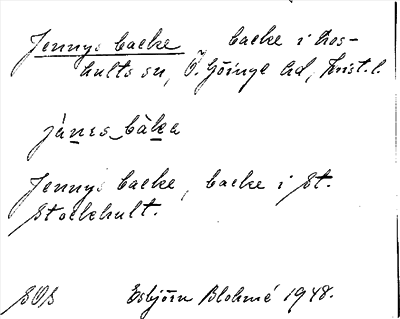 Jennys backe backe i Los-
hults sn, Ö. Göinge hd, Krist. l.
jänɛs_bàka
Jennys backe, backe i St.
Stockhult.
SOS Esbjörn Blohmé 1948.